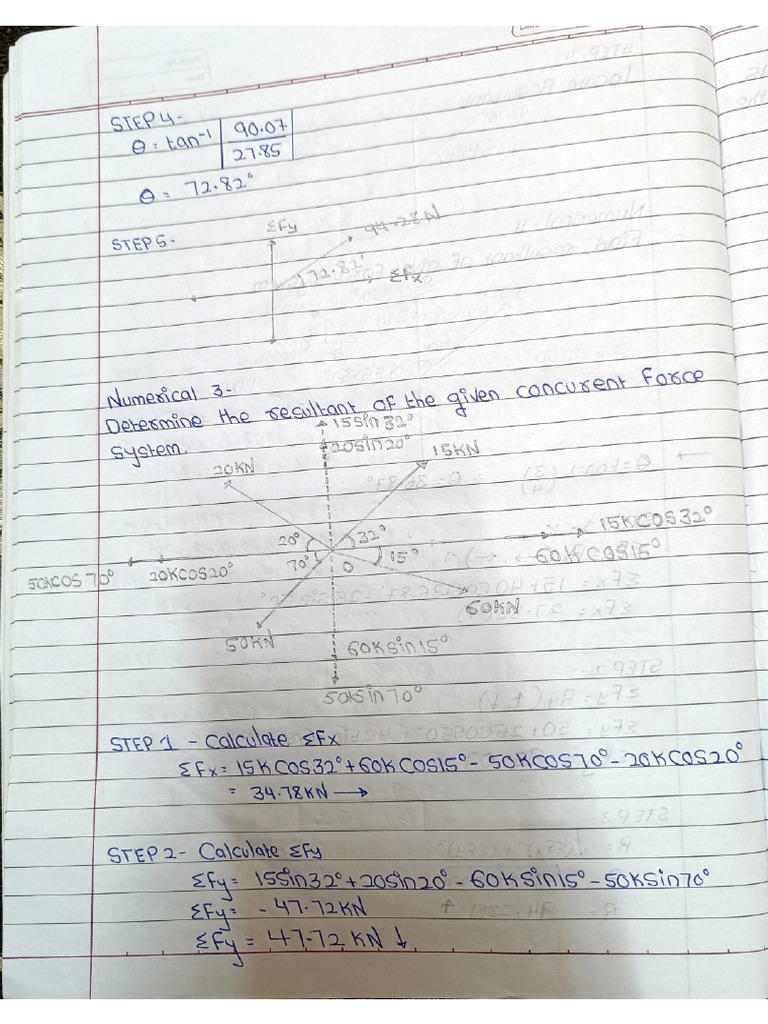 STEP 4-
θ = tan⁻¹ |90.07/27.85|
θ = 72.82°
STEP 5-
ΣFy
94.28KN
72.82°
ΣFx
Numerical 3-
Determine the resultant of the given concurent Force
System.
15sin32°
20sin20°
20KN
15KN
20°
32°
15KCOS32°
70°
O
15°
60KCOS15°
50KCOS70°
20KCOS20°
60KN
50KN
60KSin15°
50KSin70°
STEP 1 - Calculate ΣFx
ΣFx = 15KCOS32° + 60KCOS15° - 50KCOS70° - 20KCOS20°
= 34.78KN →
STEP 2 - Calculate ΣFy
ΣFy = 15Sin32° + 20Sin20° - 60KSin15° - 50KSin70°
ΣFy = - 47.72KN
ΣFy = 47.72 KN ↓